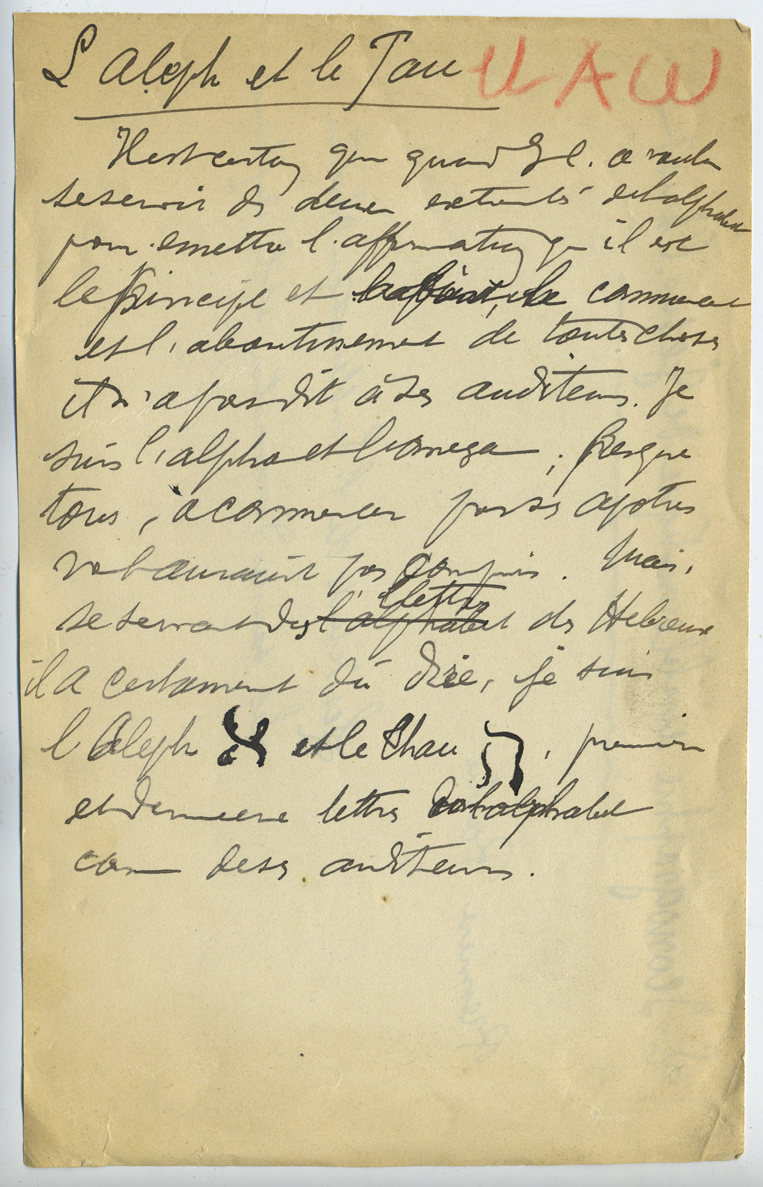 L'Aleph et le Tau
Il est certain que quand J C. a voulu
se servir des deux extremités de l'alphabet
pour emettre l'affirmation qu'il est
le principe et la fin, le commence
et l'aboutissement de toutes choses
il n'a pas dit à ses auditeurs. Je
suis l'alpha et l'omega ; presque
tous, à commencer par ses apotres
ne l'auraient pas compris. Mais,
lettres
se servant des l'alphabet des Hebreux
il a certainement dû dire, je suis
l'Aleph א et le Thau ת, premiere
et derniere lettres de l'alphabet
connu de ses auditeurs.